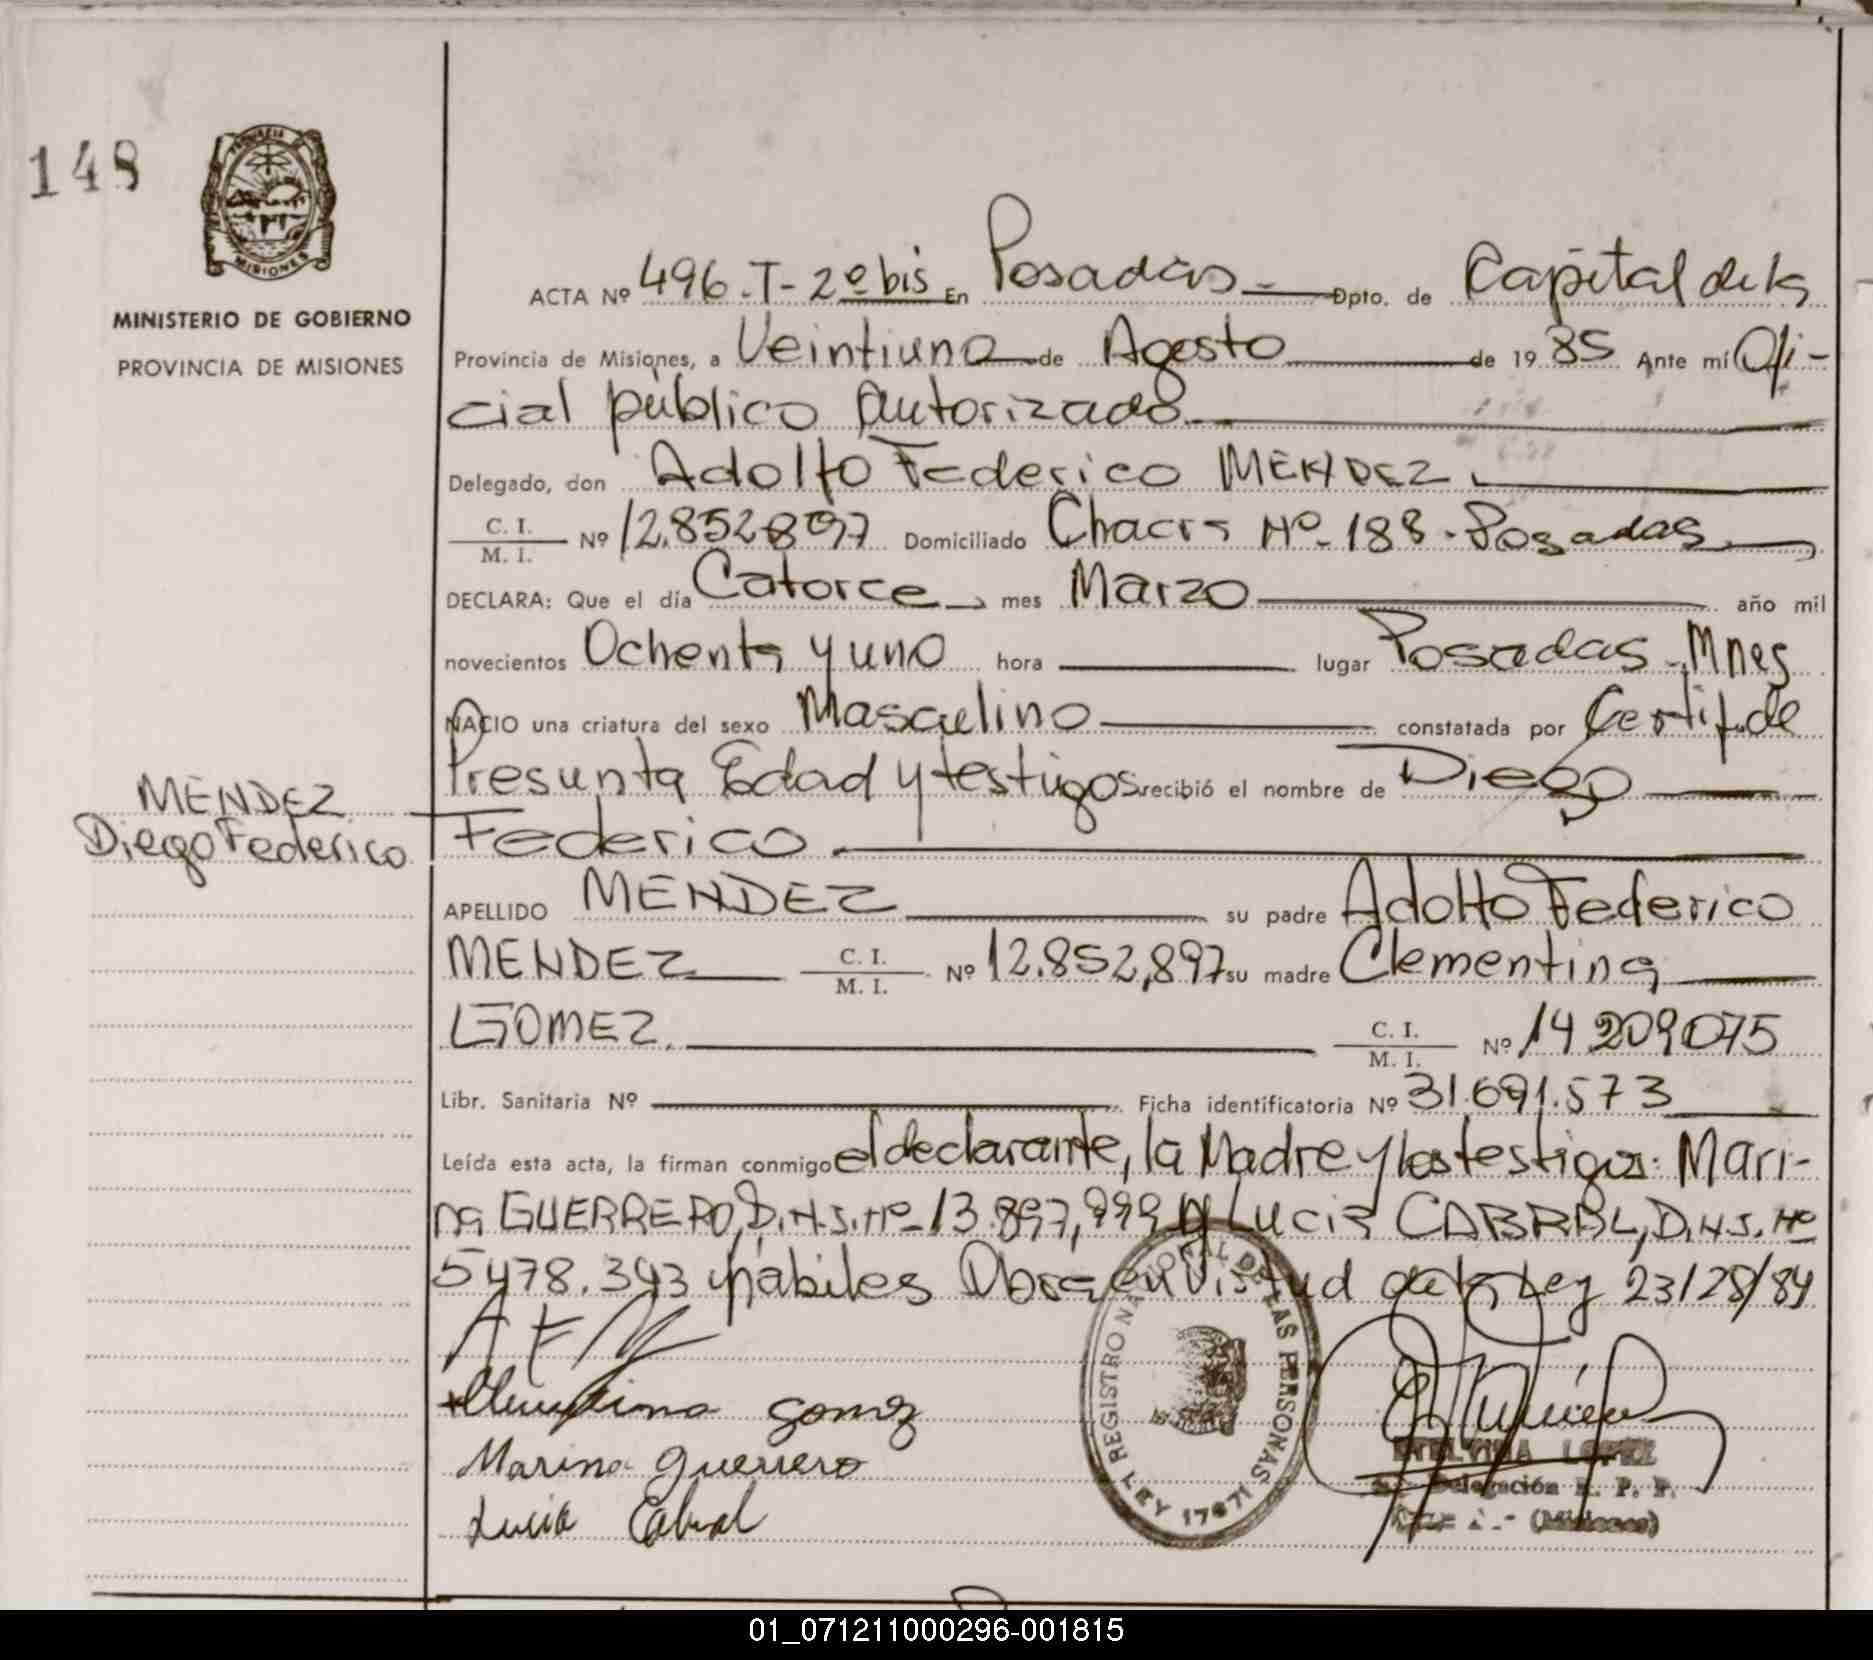 148
PROVINCIA
MISIONES
MINISTERIO DE GOBIERNO
PROVINCIA DE MISIONES
ACTA Nº 496.T-2º bis En Posadas Dpto. de Capital de la
Provincia de Misiones, a Veintiuno de Agosto de 1985 Ante mí Ofi-
cial público Autorizado
Delegado, don Adolfo Federico MENDEZ
C. I.
M. I. Nº 12.852897 Domiciliado Chacra Nº 188 - Posadas
DECLARA: Que el día Catorce mes Marzo año mil
novecientos Ochenta y uno hora lugar Posadas - Mnes
NACIO una criatura del sexo Masculino constatada por Certif. de
Presunta Edad y testigos recibió el nombre de Diego
MENDEZ
Diego Federico
Federico
APELLIDO MENDEZ su padre Adolfo Federico
MENDEZ C. I.
M. I. Nº 12.852,897 su madre Clementina
GOMEZ. C. I.
M. I. Nº 14 209075
Libr. Sanitaria Nº Ficha identificatoria Nº 31.691.573
Leída esta acta, la firman conmigo el declarante, la Madre y los testigos: Mari-
na GUERRERO, D.N.I. Nº 13.897,999 y Lucia CABRAL, D.N.I. Nº
5478.393 hábiles en Virtud de la Ley 23128/84
Clementina Gomez
Marina Guerrero
Lucia Cabral
REGISTRO NACIONAL DE LAS PERSONAS
LEY 17671
ETELVINA LOPEZ
Delegación R. P. P.
(Misiones)
01_071211000296-001815